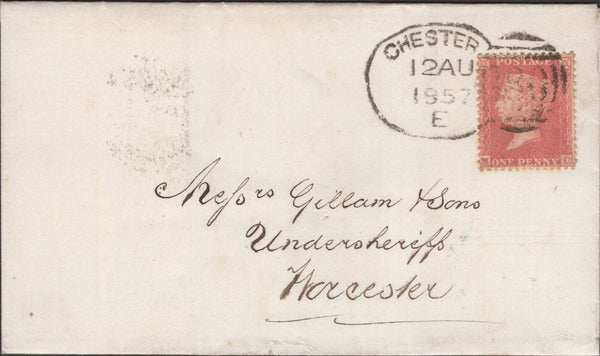 CHESTER
12AU
1857
E
POSTAGE
ONE PENNY
Messrs Gillam & Sons
Undersheriffs
Worcester